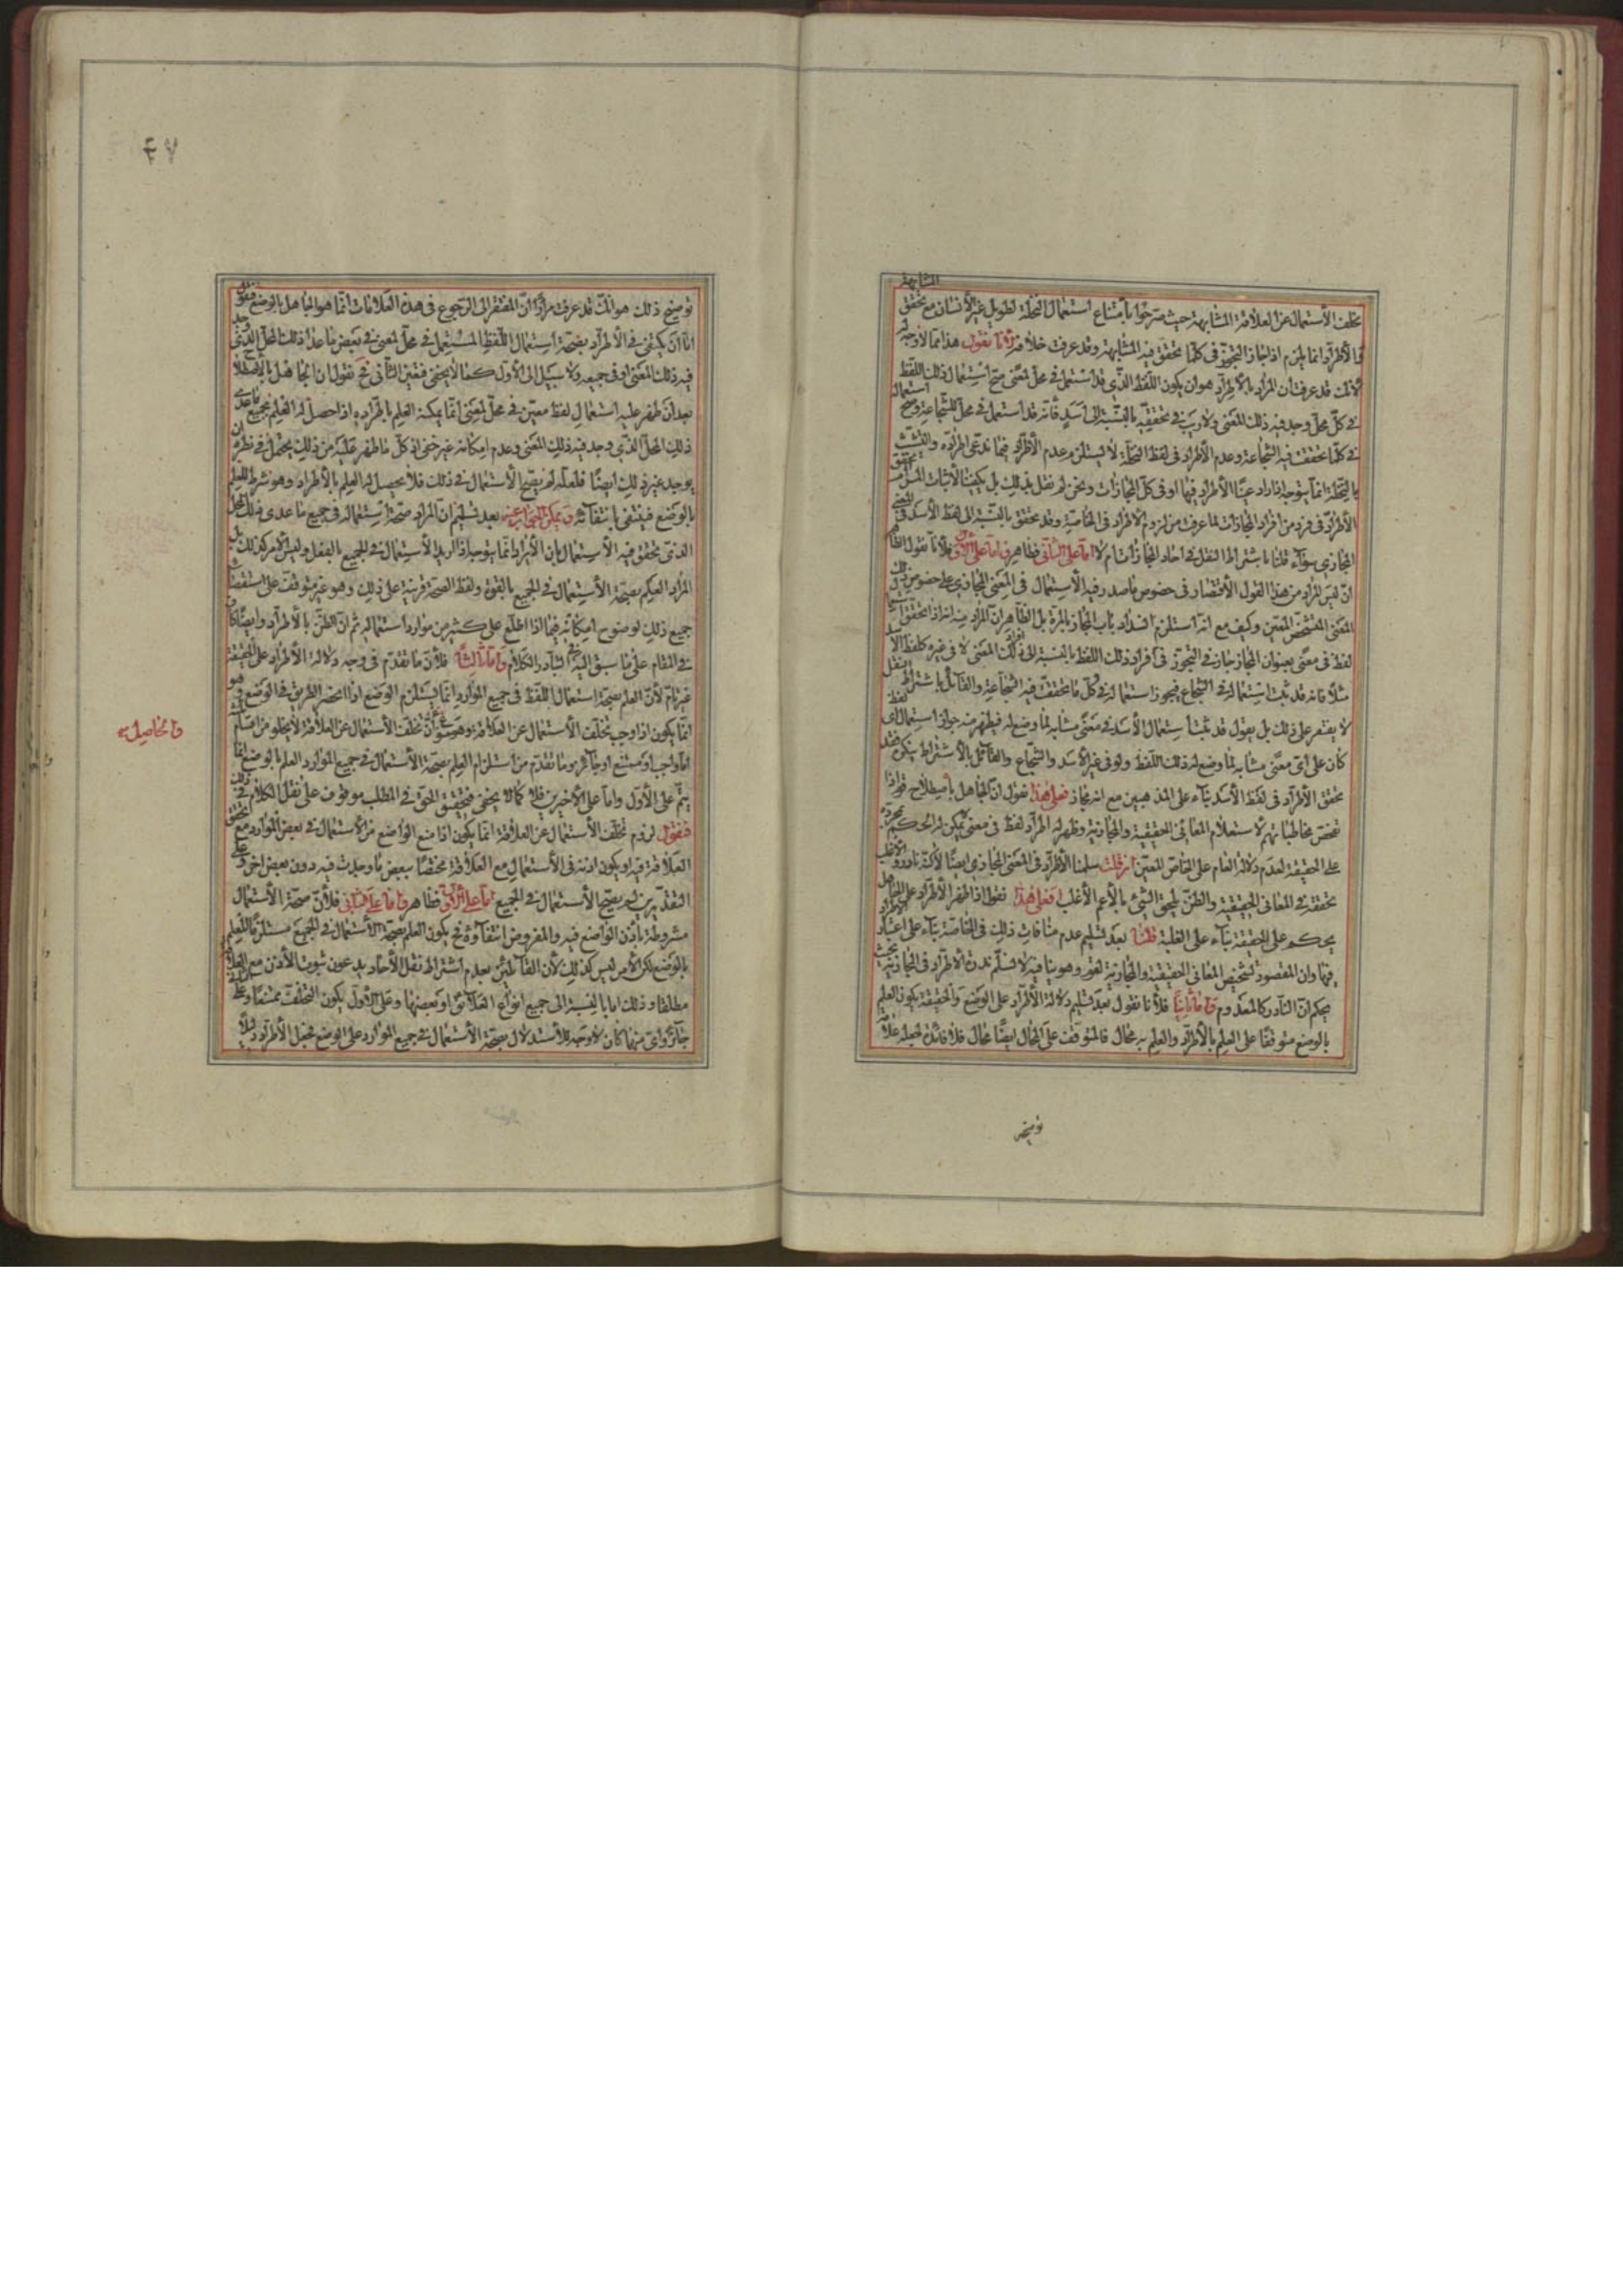 المشابهة
تخلف الاستعمال عن العلاقة المشابهة حيث صرّحوا بامتناع استعمال النخلة لطويل غير الانسان مع تحقق
فالاطراد انما يلزم اذا جاز التجوز في كلما تحقق فيه المشابهة وقد عرفت خلافه لانا نقول هذا مما لا وجه له
لانك قد عرفت ان المراد بالاطراد هو ان يكون اللفظ الذي قد استعمل في محل لمعنى صح استعمال ذلك اللفظ
في كل محل وجد فيه ذلك المعنى ولا ريب في تحققه بالنسبة الى اسد فانه قد استعمل في محل للشجاعة وصح استعماله
في كلما تحققت فيه الشجاعة وعدم الاطراد في لفظ النخلة لا يستلزم عدم الاطراد فيما ندعى اطراده والتشبث
بالنخلة انما يتوجه اذا اراد عنا الاطراد فيها او في كل المجازات ونحن لم نقل بذلك بل يكفينا لاثبات المرام تحقق
الاطراد في فرد من افراد المجازات لما عرفت من لزوم الاطراد في الخاصة وقد تحقق بالنسبة الى لفظ الاسد في المعنى
المجازي سواء قلنا باشتراط النقل في احاد المجاز ام لا اما على الثاني فظاهر واما على الاول فلانا نقول الظاهر
ان ليس المراد من هذا القول الاقتصار في خصوص ما صدر فيه الاستعمال في المعنى المجازي على خصوص ذلك
المعنى المشخص المعين وكيف مع انه استلزم انسداد باب المجاز بالمرة بل الظاهر ان المراد منه انه اذا تحقق استعمال
لفظ في معنى بعنوان المجاز جاز في التجوز في افراد ذلك اللفظ بالنسبة الى افراد ذلك المعنى لا في غيره كلفظ الاسد
مثلا فانه قد ثبت استعماله في الشجاع فيجوز استعماله في كل ما تحققت فيه الشجاعة والقائل باشتراط النقل
لا يقتصر على ذلك بل يقول قد ثبت استعمال الاسد في معنى مشابه لما وضع له فيظهر منه جواز استعمال اى لفظ
كان على اى معنى مشابه لما وضع له ذلك اللفظ ولو في غير الاسد والشجاع والقائل بالاشتراط ينكره فقد
تحقق الاطراد في لفظ الاسد بناء على المذهبين مع انه مجاز فعلى هذا نقول ان الجاهل باصطلاح قوم اذا
تفحص مخاطباتهم لاستعلام المعاني الحقيقية والمجازية وظهر له اطراد لفظ في معنى لم يمكن له الحكم بمجرده
على الحقيقة لعدم دلالة العام على الخاص المعين ان قلت سلمنا الاطراد في المعنى المجازي ايضا لكنه نادر والاغلب
تحققه في المعاني الحقيقية والظن يلحق الشئ بالاعم الاغلب فعلى هذا نقول اذا ظهر الاطراد على الجاهل
يحكم على الحقيقة بناء على الغلبة قلنا بعد تسليم عدم منافات ذلك في الخاصة بناء على اعتبار الاطراد
فيها وان المقصود تشخيص المعاني الحقيقية والمجازية لغة وهو ينافيه لا نسلم ندرة الاطراد في المجازية بحيث
يحكم ان النادر كالمعدوم واما ثانيا فلانا نقول بعد تسليم دلالة الاطراد على الوضع والحقيقة يكون العلم
بالوضع متوقفا على العلم بالاطراد والعلم به محال فالمتوقف على المحال ايضا محال فلا فائدة لجعله علامة
توضيح
٤٧
توضيح ذلك هو انك قد عرفت مرارا ان المفتقر الى الرجوع في هذه العلامات انما هو الجاهل بالوضع فنقول
اما ان يكتفى في الاطراد بصحة استعمال اللفظ المستعمل في محل لمعنى في بعض ما عدا ذلك المحل الذي وجد
فيه ذلك المعنى او في جميعه ولا سبيل الى الاول كما لا يخفى فتعين الثاني فح نقول ان الجاهل بالاصطلاح
بعد ان ظهر عليه استعمال لفظ معين في محل لمعنى انما يمكنه العلم باطراده اذا حصل له العلم بجميع ما عدى
ذلك المحل الذي وجد فيه ذلك المعنى وعدم امكانه غير خفي اذ كل ما ظهر عليه من ذلك يحتمل في نظره ان
يوجد غير ذلك ايضا فلعله لم يصح الاستعمال في ذلك فلا يحصل له العلم بالاطراد وهو شرط للعلم
بالوضع فينتفى بانتفائه ويمكن الجواب عنه بعد تسليم ان المراد صحة استعماله في جميع ما عدى ذلك المحل
الذي تحقق فيه الاستعمال بان الايراد انما يتوجه اذا اريد الاستعمال في الجميع بالفعل وليس الامر كذلك بل
المراد العلم بصحة الاستعمال في الجميع بالقوة ولفظ الصحة قرينة على ذلك وهو غير متوقف على استقصاء
جميع ذلك لوضوح امكانه فيما اذا اطلع على كثير من موارد استعماله ثم ان الظن بالاطراد ايضا كاف
في المقام على ما سبق اليه في التبادر الكلام واما ثالثا فلان ما تقدم في وجه دلالة الاطراد على الحقيقة
غير تام لان العلم بصحة استعمال اللفظ في جميع الموارد انما يستلزم الوضع اذا انحصر الطريق في الوضع وهو
انما يكون اذا وجب تخلف الاستعمال عن العلاقة وهو ممنوع لان تخلف الاستعمال عن العلاقة لا يخلو من
اما واجب او ممتنع او جائز وما تقدم من استلزام العلم بصحة الاستعمال في جميع الموارد العلم بالوضع انما
يتم على الاول واما على الاخيرين فلا كما لا يخفى فتحقيق الحق في المطلب موقوف على نقل الكلام في ذلك
فنقول لزوم تخلف الاستعمال عن العلاقة انما يكون اذا منع الواضع من الاستعمال في بعض الموارد مع تحقق
العلاقة فيه او يكون اذنه في الاستعمال مع العلاقة مختصا ببعض ما وجدت فيه دون بعض اخر وعلى
التقديرين لم يصح الاستعمال في الجميع اما على الاول فظاهر واما على الثاني فلان صحة الاستعمال
مشروطة باذن الواضع فيه والمفروض انتفاؤه فح يكون العلم بصحة الاستعمال في الجميع مستلزما للعلم
بالوضع لكن الامر ليس كذلك لان القائلين بعدم اشتراط نقل الآحاد يدعون ثبوت الاذن مع العلاقة
مطلقا وذلك اما بالنسبة الى جميع انواع العلائق او بعضها وعلى الاول يكون التخلف ممتنعا وعلى الثاني
جائزا واى منهما كان لا وجه للاستدلال بصحة الاستعمال في جميع الموارد على الوضع فجعل الاطراد دليلا
والحاصل